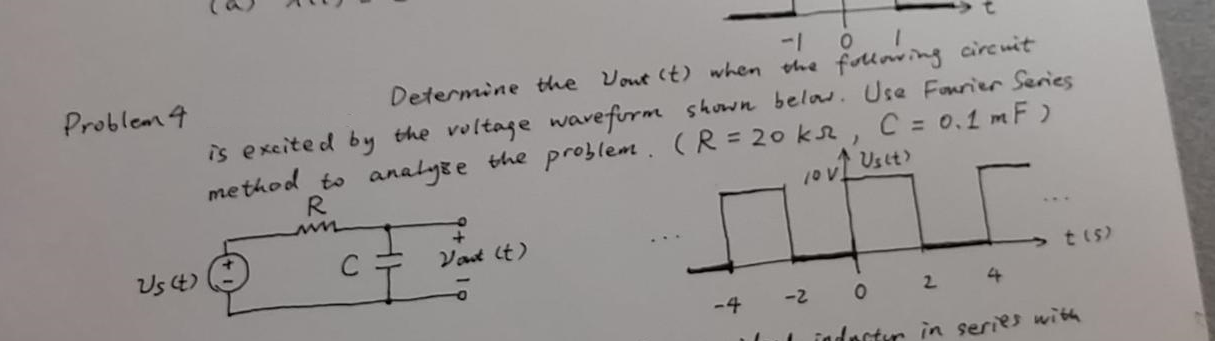 (a)
t
-1 0 1
Problem 4 Determine the Vout(t) when the following circuit
is excited by the voltage waveform shown below. Use Fourier Series
method to analyze the problem. (R = 20 kΩ, C = 0.1 mF)
R
Vs(t) + - C + Vout (t) -
10V Vs(t)
... ...
t(s)
-4 -2 0 2 4
inductor in series with